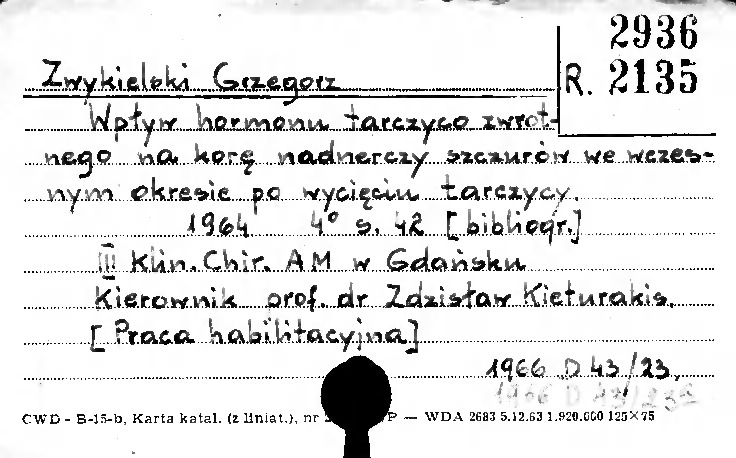 2936
R. 2135
Zwykielski Grzegorz
Wpływ hormonu tarczyco zwrot-
nego na korę nadnerczy szczurów we wczes-
nym okresie po wycięciu tarczycy.
1964 4° s. 42 [bibliogr.]
III Klin. Chir. AM w Gdańsku
Kierownik prof. dr Zdzisław Kieturakis.
[Praca habilitacyjna]
1966 D 43/23.
1966 D 43/23
CWD - B-15-b, Karta katal. (z liniat.), nr P — WDA 2683 5.12.63 1.920.000 125×75